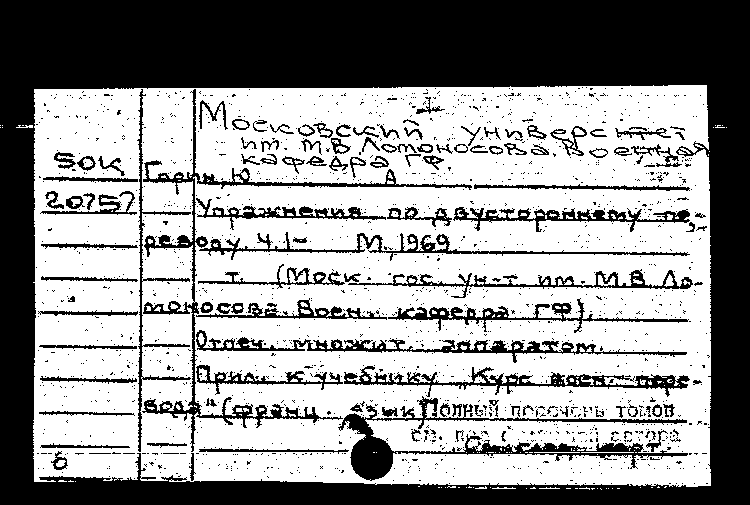 Московский университет
им. М.В Ломоносова. Военная
кафедра ГФ.
SOK
Гарин, Ю А
20757
Упражнения по двустороннему пе-
реводу. Ч. 1- М., 1969.
т. (Моск. гос. ун-т им. М.В Ло-
моносова. Воен. кафедра ГФ).
Отпеч. множит. аппаратом.
Прил. к учебнику „Курс воен. пере-
вода" (франц. язык) Полный перечень томов
см. под автора
карт.
8